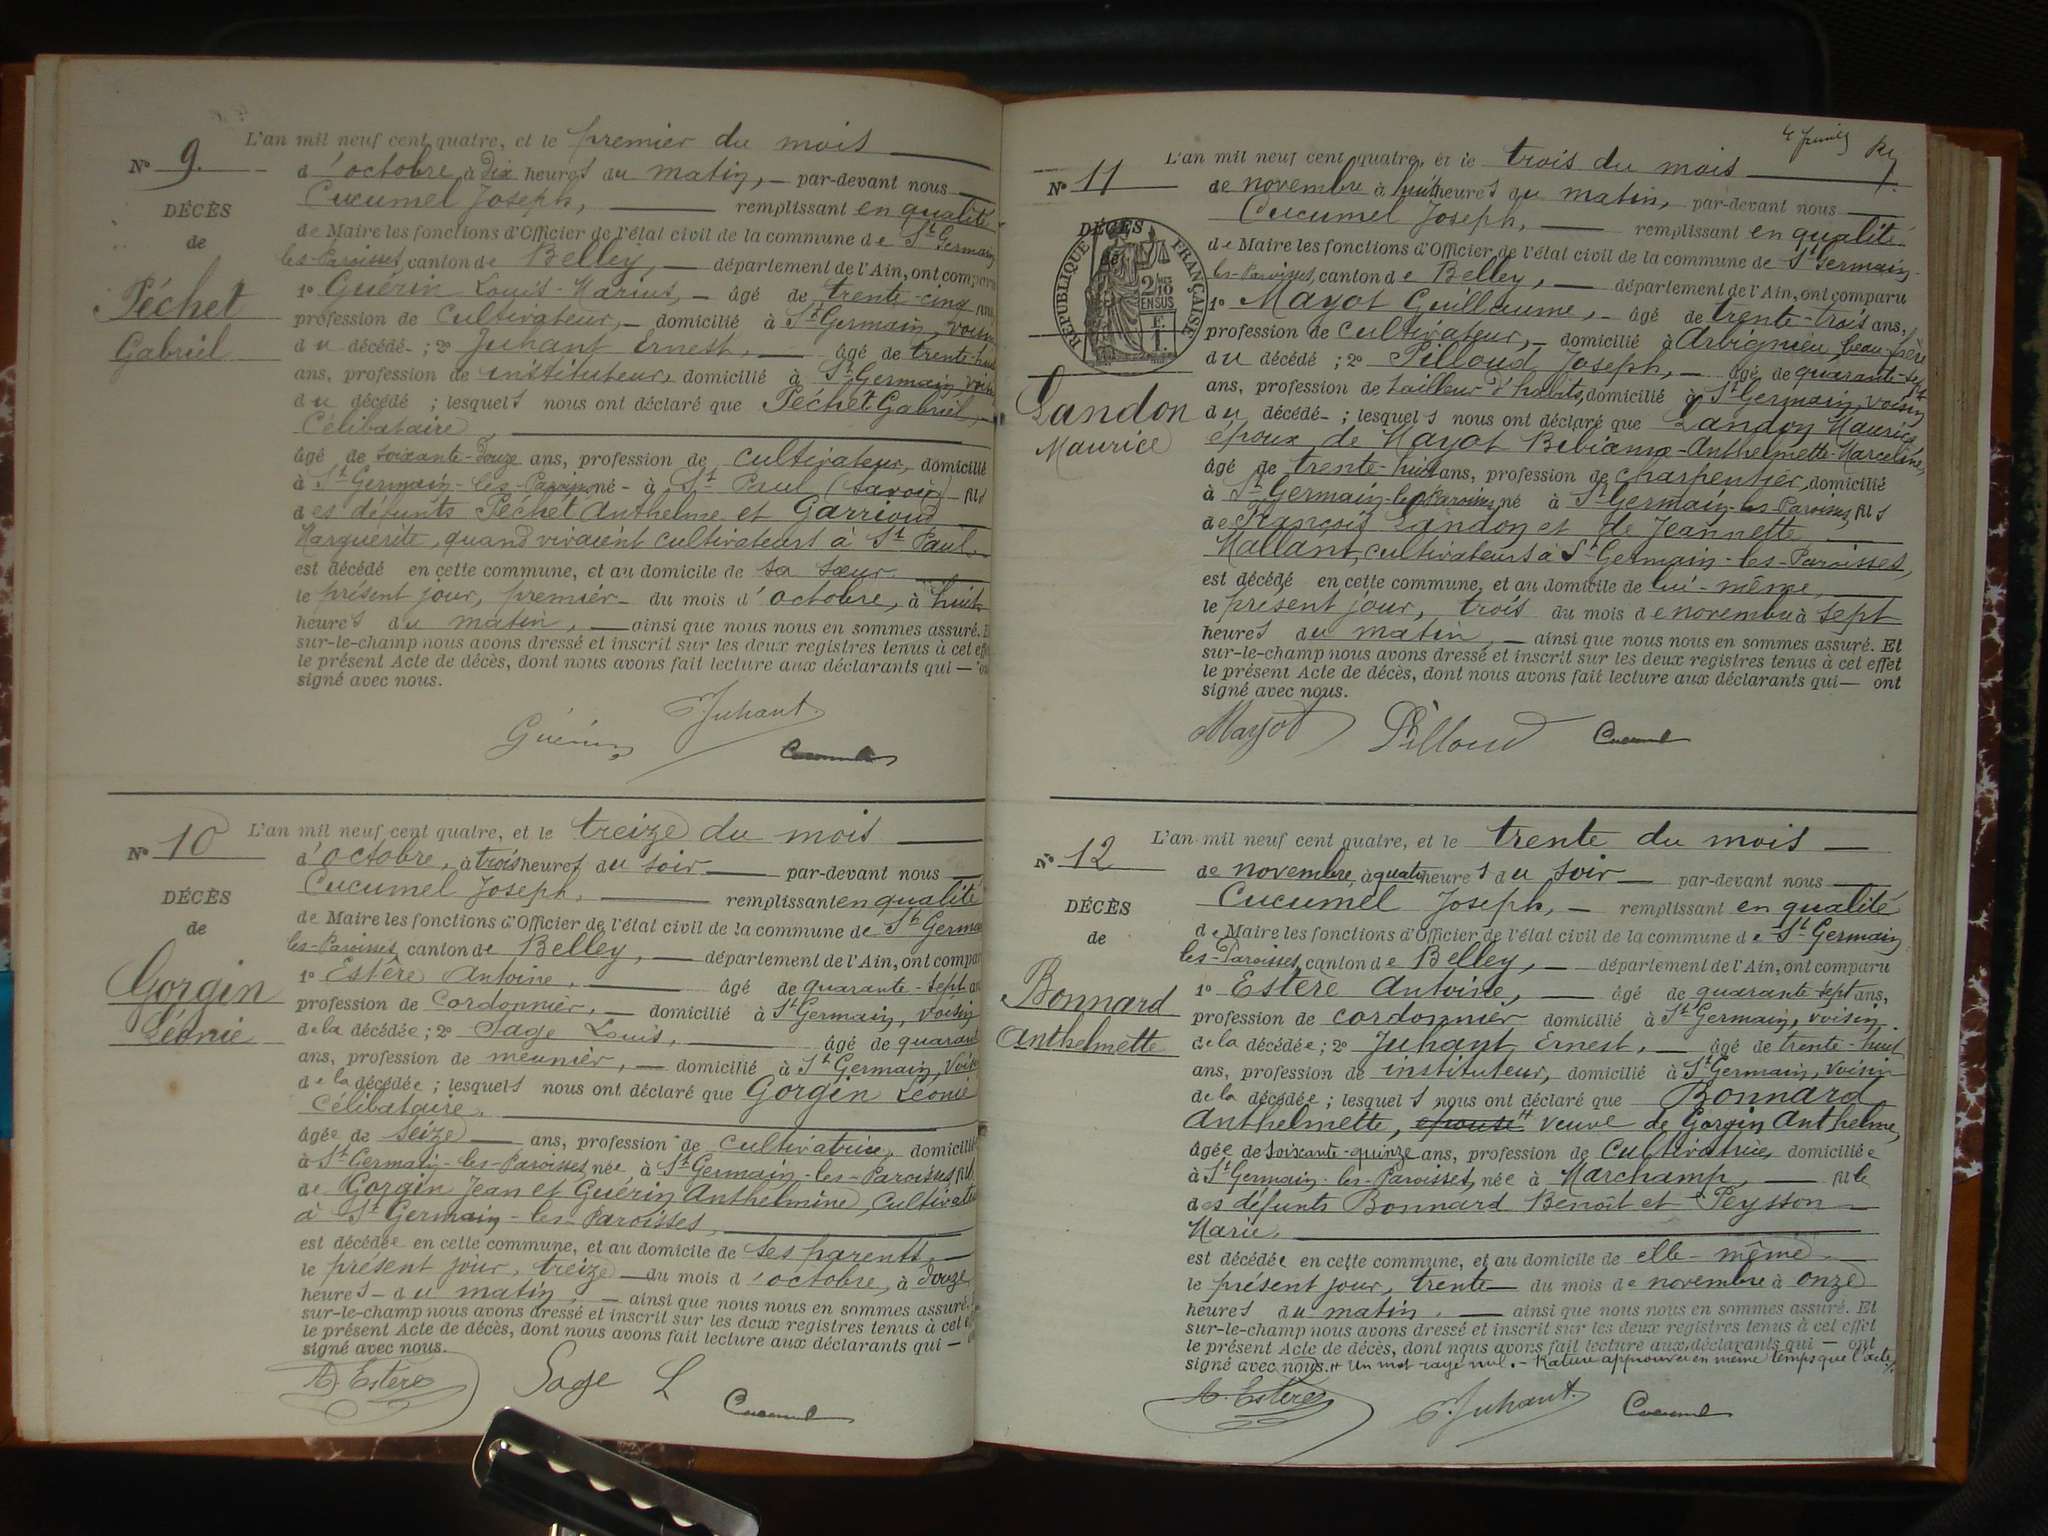 L'an mil neuf cent quatre, et le premier du mois
N° 9.
d'octobre, à dix heures du matin, par-devant nous
Cucumel Joseph, remplissant en qualité
DÉCÈS
de Maire les fonctions d'Officier de l'état civil de la commune de St Germain
de
les-Paroisses, canton de Belley, département de l'Ain, ont comparu
Péchet
1° Guérin Louis-Marius, âgé de trente-cinq ans,
profession de cultivateur, domicilié à St Germain, voisin
Gabriel
du décédé ; 2° Juhant Ernest, âgé de trente-huit
ans, profession de instituteur, domicilié à St Germain, voisin
du décédé ; lesquels nous ont déclaré que Péchet Gabriel,
Célibataire,
âgé de soixante-douze ans, profession de cultivateur, domicilié
à St Germain-les-Paroisses né à St Paul (Savoie) fils
des défunts Péchet Anthelme et Garrioud
Marguerite, quand vivaient cultivateurs à St Paul.
est décédé en cette commune, et au domicile de sa sœur
le présent jour, premier du mois d'octobre, à huit
heures du matin, ainsi que nous nous en sommes assuré. Et
sur-le-champ nous avons dressé et inscrit sur les deux registres tenus à cet effet
le présent Acte de décès, dont nous avons fait lecture aux déclarants qui — ont
signé avec nous.
E. Juhant.
Guérin
Cucumel
L'an mil neuf cent quatre, et le treize du mois
N° 10
d'octobre, à trois heures du soir par-devant nous
Cucumel Joseph, remplissant en qualité
DÉCÈS
de Maire les fonctions d'Officier de l'état civil de la commune de St Germain
de
les-Paroisses, canton de Belley, département de l'Ain, ont comparu
Gorgin
1° Estère Antoine, âgé de quarante-sept ans
profession de cordonnier, domicilié à St Germain, voisin
Léonie
de la décédée ; 2° Sage Louis, âgé de quarante
ans, profession de meunier, domicilié à St Germain, voisin
de la décédée ; lesquels nous ont déclaré que Gorgin Léonie
Célibataire,
âgée de seize ans, profession de cultivatrice, domiciliée
à St Germain-les-Paroisses, née à St Germain-les-Paroisses, fille
de Gorgin Jean et Guérin Anthelmine, cultivateurs
à St Germain-les-Paroisses,
est décédée en cette commune, et au domicile de ses parents,
le présent jour, treize du mois d'octobre, à douze
heures du matin, ainsi que nous nous en sommes assuré.
sur-le-champ nous avons dressé et inscrit sur les deux registres tenus à cet
le présent Acte de décès, dont nous avons fait lecture aux déclarants qui —
signé avec nous.
A. Estère Sage L Cucumel
L'an mil neuf cent quatre, et le trois du mois
N° 11
de novembre à huit heures du matin, par-devant nous
Cucumel Joseph, remplissant en qualité
DÉCÈS
de
RÉPUBLIQUE FRANÇAISE
2/10 EN SUS
de Maire les fonctions d'Officier de l'état civil de la commune de St Germain-
les-Paroisses, canton de Belley, département de l'Ain, ont comparu
1° Mayot Guillaume, âgé de trente-trois ans,
profession de cultivateur, domicilié à Arbignieu, beau-frère
du décédé ; 2° Pilloud Joseph, âgé de quarante-sept
ans, profession de tailleur d'habits, domicilié à St Germain, voisin
Landon
du décédé ; lesquels nous ont déclaré que Landon Maurice
Maurice
époux de Mayot Bibiane-Anthelmette-Marceline,
âgé de trente-huit ans, profession de charpentier, domicilié
à St Germain-les-Paroisses, né à St Germain-les-Paroisses, fils
de François Landon et de Jeannette
Mallant, cultivateurs à St Germain-les-Paroisses,
est décédé en cette commune, et au domicile de lui-même,
le présent jour, trois du mois de novembre à sept
heures du matin, ainsi que nous nous en sommes assuré. Et
sur-le-champ nous avons dressé et inscrit sur les deux registres tenus à cet effet
le présent Acte de décès, dont nous avons fait lecture aux déclarants qui — ont
signé avec nous.
Mayot Pilloud Cucumel
L'an mil neuf cent quatre, et le trente du mois
N° 12
de novembre, à quatre heures du soir par-devant nous
Cucumel Joseph, remplissant en qualité
DÉCÈS
de Maire les fonctions d'Officier de l'état civil de la commune de St Germain
de
les-Paroisses, canton de Belley, département de l'Ain, ont comparu
Bonnard
1° Estère Antoine, âgé de quarante-sept ans,
profession de cordonnier domicilié à St Germain, voisin
Anthelmette
de la décédée ; 2° Juhant Ernest, âgé de trente-huit
ans, profession de instituteur, domicilié à St Germain, voisin
de la décédée ; lesquels nous ont déclaré que Bonnard
Anthelmette, épouse veuve de Gorgin Anthelme,
âgée de soixante-quinze ans, profession de cultivatrice, domiciliée
à St Germain-les-Paroisses, née à Marchamp, fille
des défunts Bonnard Benoît et Peysson
Marie,
est décédée en cette commune, et au domicile de elle-même
le présent jour, trente du mois de novembre à onze
heures du matin, ainsi que nous nous en sommes assuré. Et
sur-le-champ nous avons dressé et inscrit sur les deux registres tenus à cet effet
le présent Acte de décès, dont nous avons fait lecture aux déclarants qui — ont
signé avec nous. Un mot rayé nul. — Rature approuvée en même temps que l'acte
A. Estère E. Juhant. Cucumel